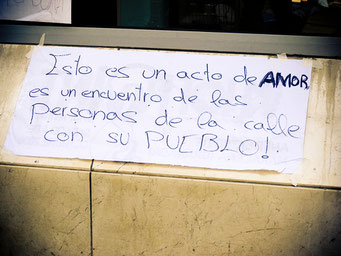 Esto es un acto de AMOR
es un encuentro de las
personas de la calle
con su PUEBLO!